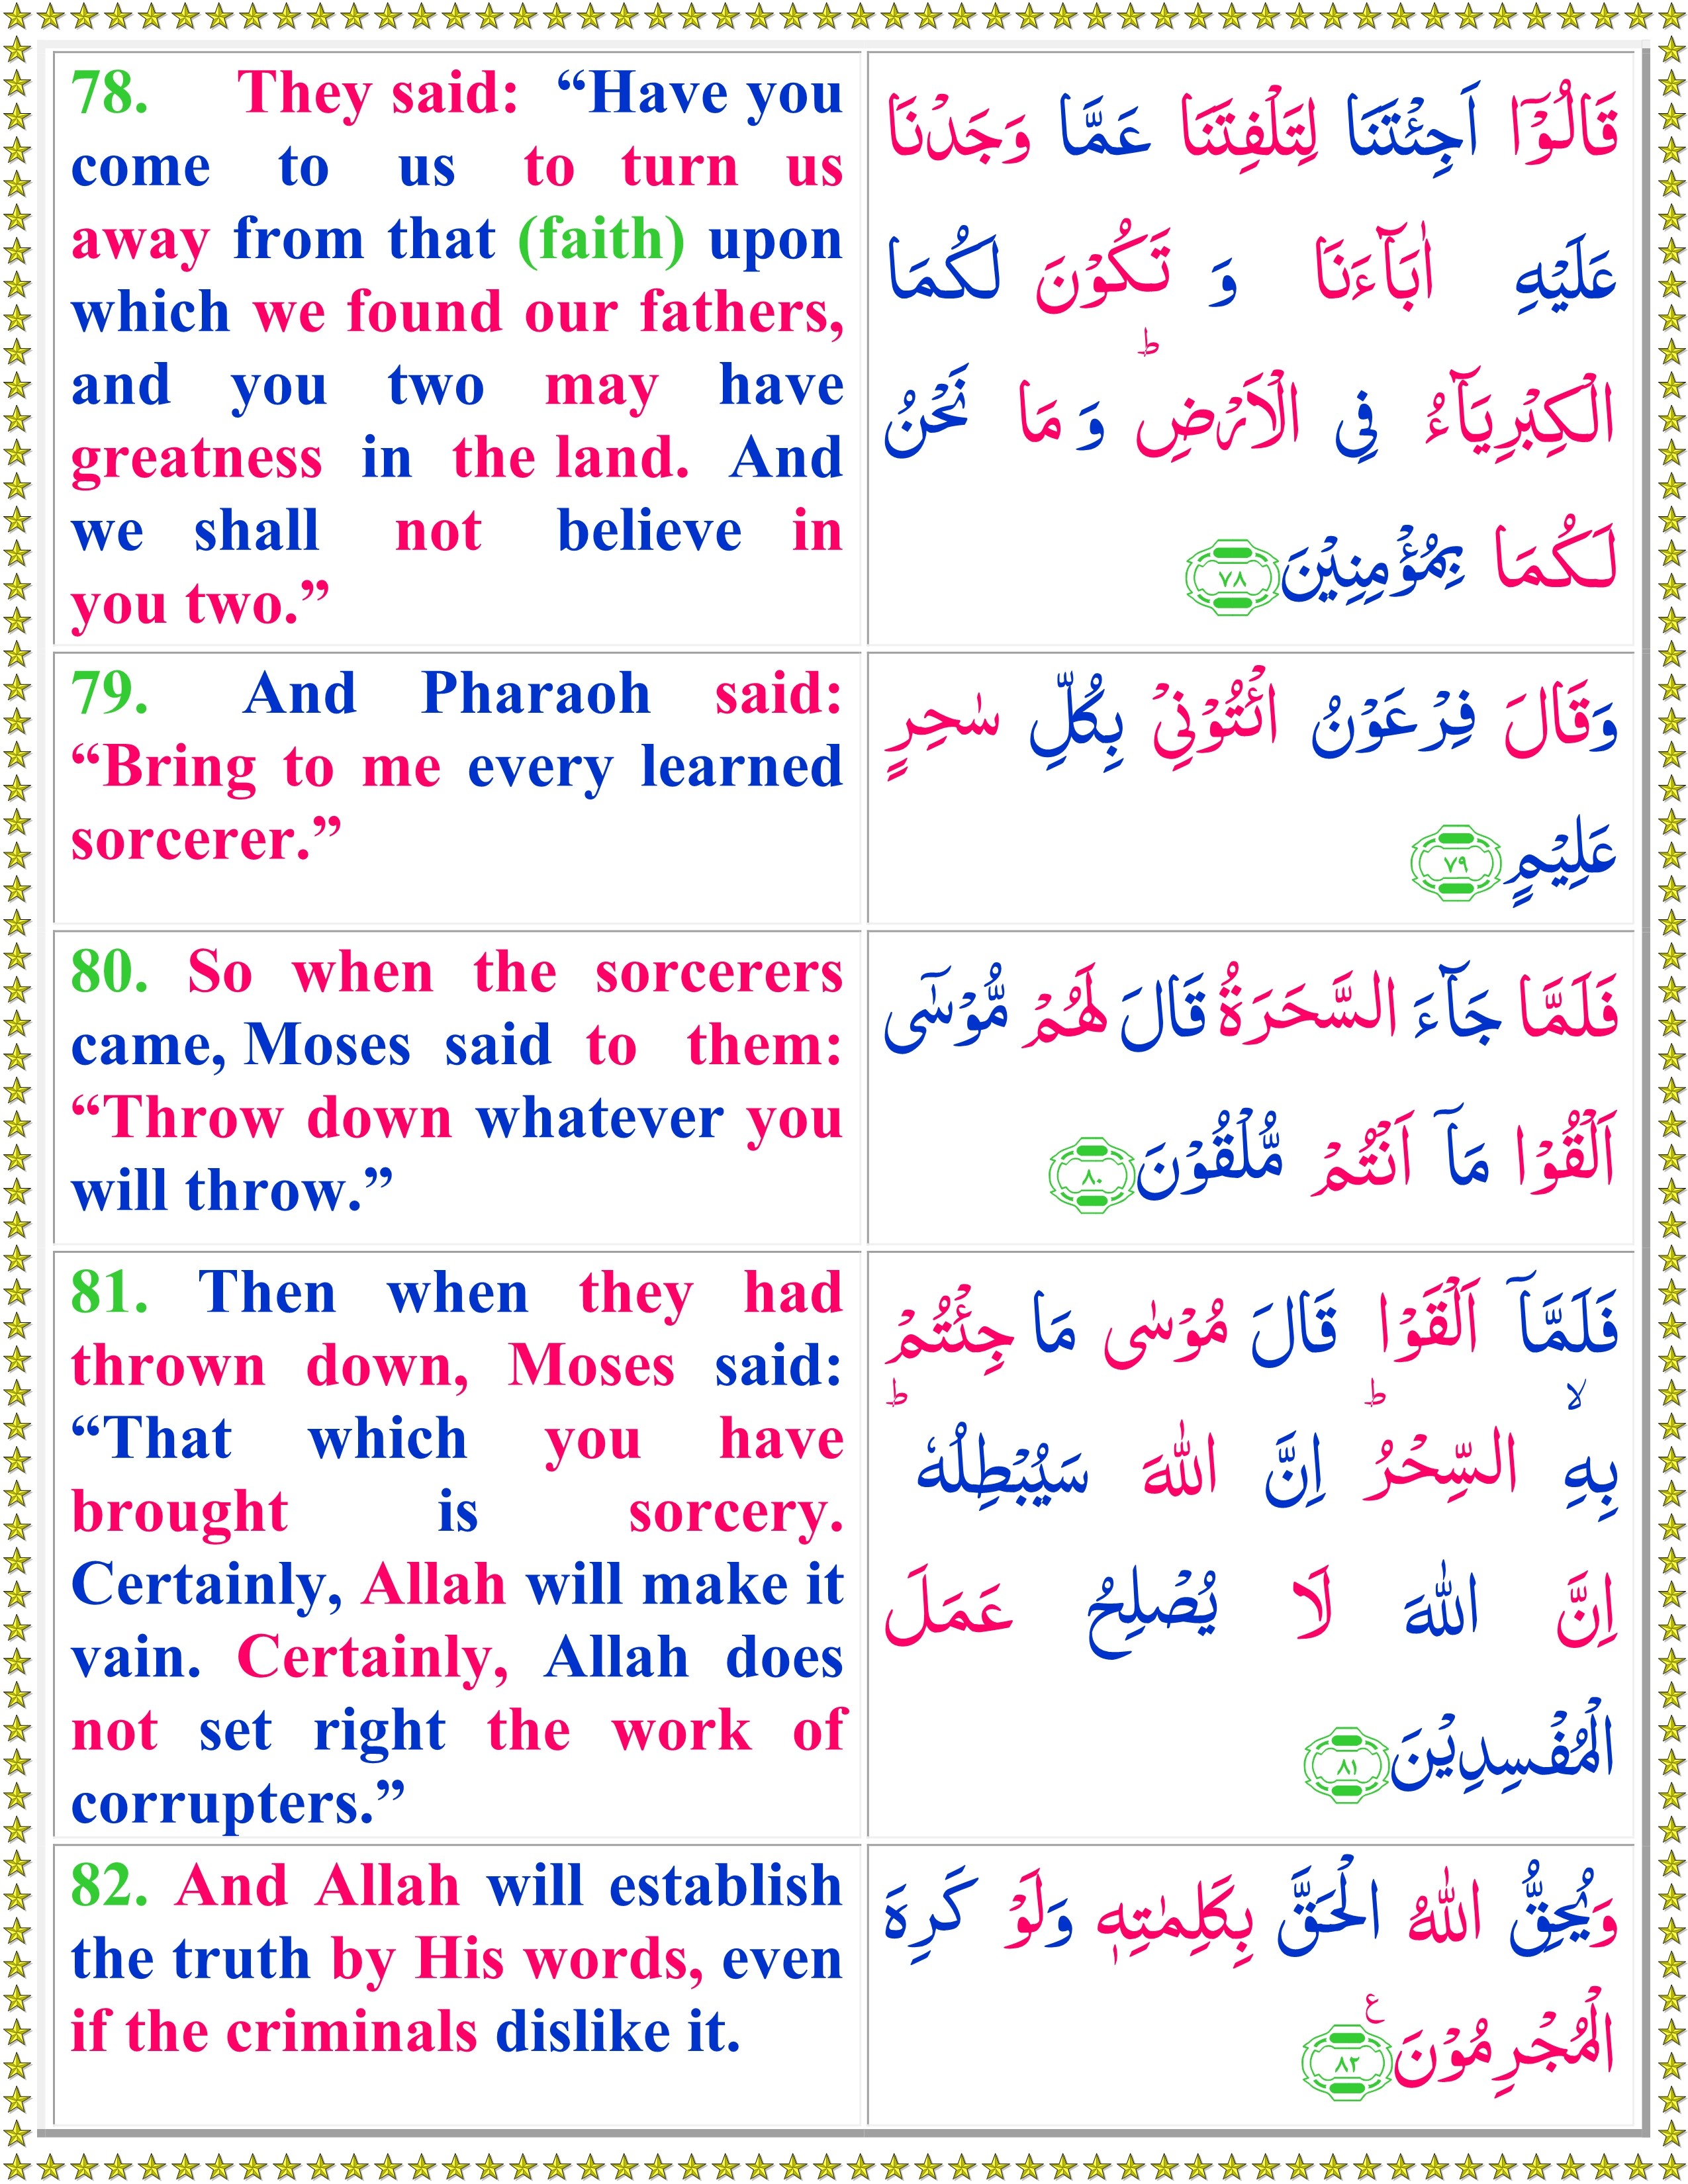 78. They said: “Have you
come to us to turn us
away from that (faith) upon
which we found our fathers,
and you two may have
greatness in the land. And
we shall not believe in
you two.”
قَالُوْۤا اَجِئْتَنَا لِتَلْفِتَنَا عَمَّا وَجَدْنَا
عَلَيْهِ اٰبَآءَنَا وَ تَكُوْنَ لَكُمَا
الْكِبْرِيَآءُ فِى الْاَرْضِؕ وَ مَا نَحْنُ
لَكُمَا بِمُؤْمِنِيْنَ ٧٨
79. And Pharaoh said:
“Bring to me every learned
sorcerer.”
وَقَالَ فِرْعَوْنُ ائْتُوْنِىْ بِكُلِّ سٰحِرٍ
عَلِيْمٍ ٧٩
80. So when the sorcerers
came, Moses said to them:
“Throw down whatever you
will throw.”
فَلَمَّا جَآءَ السَّحَرَةُ قَالَ لَهُمْ مُّوْسٰٓى
اَلْقُوْا مَاۤ اَنْتُمْ مُّلْقُوْنَ ٨٠
81. Then when they had
thrown down, Moses said:
“That which you have
brought is sorcery.
Certainly, Allah will make it
vain. Certainly, Allah does
not set right the work of
corrupters.”
فَلَمَّاۤ اَلْقَوْا قَالَ مُوْسٰى مَا جِئْتُمْ
بِهِۙ السِّحْرُؕ اِنَّ اللّٰهَ سَيُبْطِلُهٗؕ
اِنَّ اللّٰهَ لَا يُصْلِحُ عَمَلَ
الْمُفْسِدِيْنَ ٨١
82. And Allah will establish
the truth by His words, even
if the criminals dislike it.
وَيُحِقُّ اللّٰهُ الْحَقَّ بِكَلِمٰتِهٖ وَلَوْ كَرِهَ
الْمُجْرِمُوْنَ ٨٢ ع